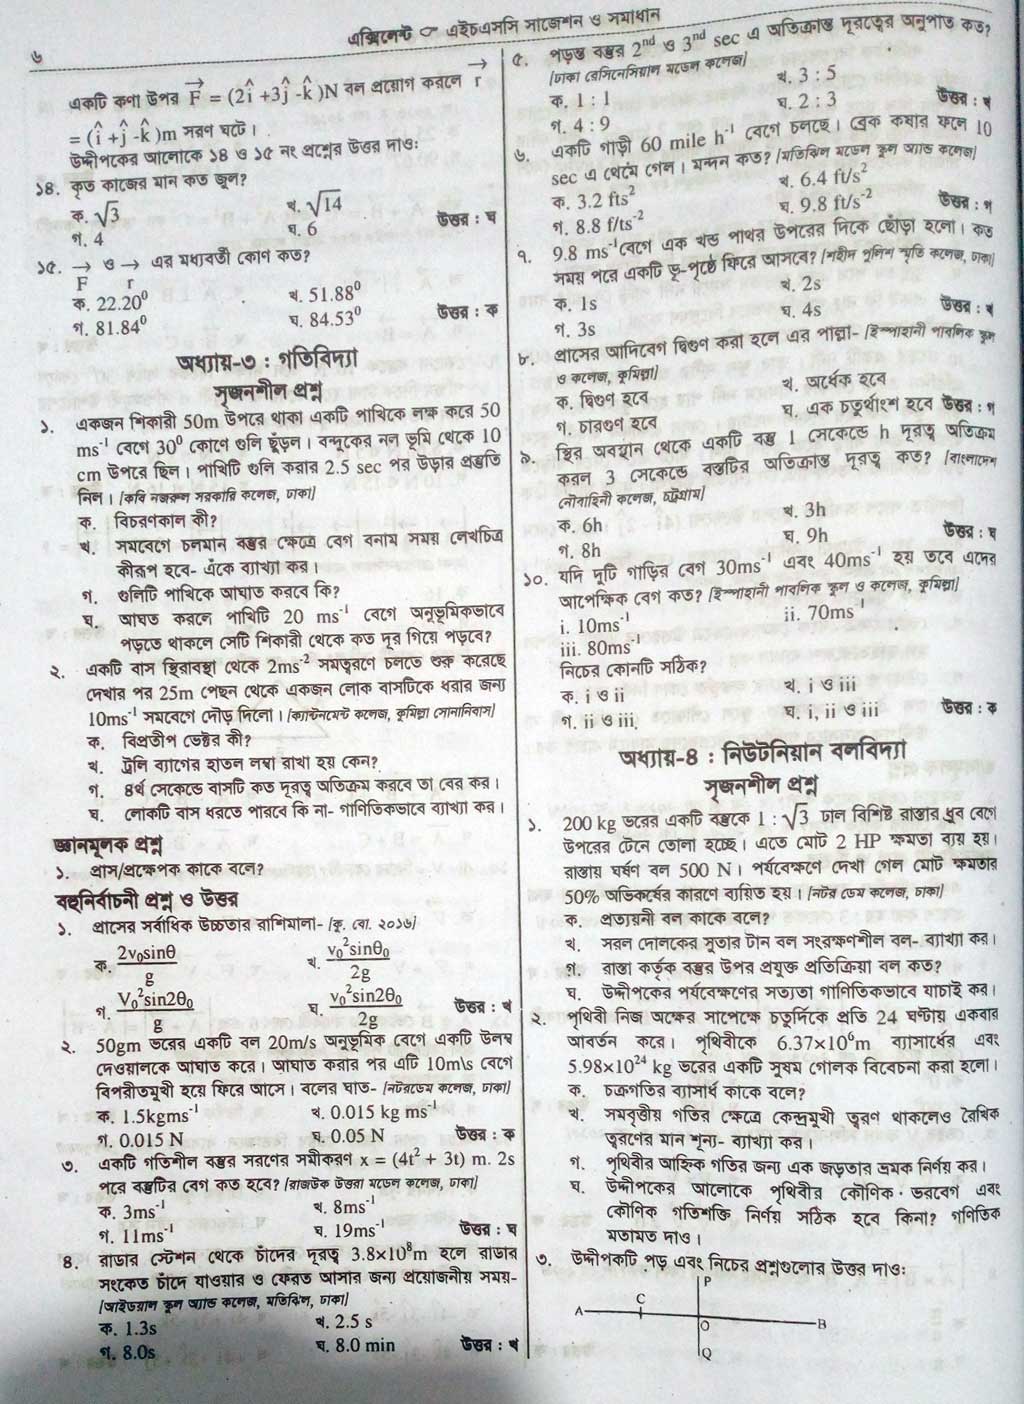 ৬
এক্সিলেন্ট ☞ এইচএসসি সাজেশন ও সমাধান
একটি কণা উপর F = (2î +3ĵ -k̂ )N বল প্রয়োগ করলে r
= (î +ĵ -k̂ )m সরণ ঘটে।
উদ্দীপকের আলোকে ১৪ ও ১৫ নং প্রশ্নের উত্তর দাও:
১৪. কৃত কাজের মান কত জুল?
ক. √3 খ. √14
গ. 4 ঘ. 6 উত্তর : ঘ
১৫. F ও r এর মধ্যবর্তী কোণ কত?
ক. 22.20⁰ খ. 51.88⁰
গ. 81.84⁰ ঘ. 84.53⁰ উত্তর : ক
অধ্যায়-৩ : গতিবিদ্যা
সৃজনশীল প্রশ্ন
১. একজন শিকারী 50m উপরে থাকা একটি পাখিকে লক্ষ করে 50
ms⁻¹ বেগে 30⁰ কোণে গুলি ছুঁড়ল। বন্দুকের নল ভূমি থেকে 10
cm উপরে ছিল। পাখিটি গুলি করার 2.5 sec পর উড়ার প্রস্তুতি
নিল। [কবি নজরুল সরকারি কলেজ, ঢাকা]
ক. বিচরণকাল কী?
খ. সমবেগে চলমান বস্তুর ক্ষেত্রে বেগ বনাম সময় লেখচিত্র
কীরূপ হবে- এঁকে ব্যাখ্যা কর।
গ. গুলিটি পাখিকে আঘাত করবে কি?
ঘ. আঘত করলে পাখিটি 20 ms⁻¹ বেগে অনুভূমিকভাবে
পড়তে থাকলে সেটি শিকারী থেকে কত দূর গিয়ে পড়বে?
২. একটি বাস স্থিরাবস্থা থেকে 2ms⁻² সমত্বরণে চলতে শুরু করেছে
দেখার পর 25m পেছন থেকে একজন লোক বাসটিকে ধরার জন্য
10ms⁻¹ সমবেগে দৌড় দিলো। [ক্যান্টনমেন্ট কলেজ, কুমিল্লা সেনানিবাস]
ক. বিপ্রতীপ ভেক্টর কী?
খ. ট্রলি ব্যাগের হাতল লম্বা রাখা হয় কেন?
গ. ৪র্থ সেকেন্ডে বাসটি কত দূরত্ব অতিক্রম করবে তা বের কর।
ঘ. লোকটি বাস ধরতে পারবে কি না- গাণিতিকভাবে ব্যাখ্যা কর।
জ্ঞানমূলক প্রশ্ন
১. প্রাস/প্রক্ষেপক কাকে বলে?
বহুনির্বাচনী প্রশ্ন ও উত্তর
১. প্রাসের সর্বাধিক উচ্চতার রাশিমালা- [কু. বো. ২০১৬]
ক. 2v₀sinθ/g খ. v₀²sinθ₀/2g
গ. V₀²sin2θ₀/g ঘ. v₀²sin2θ₀/2g উত্তর : খ
২. 50gm ভরের একটি বল 20m/s অনুভূমিক বেগে একটি উলম্ব
দেওয়ালকে আঘাত করে। আঘাত করার পর এটি 10m\s বেগে
বিপরীতমুখী হয়ে ফিরে আসে। বলের ঘাত- [নটরডেম কলেজ, ঢাকা]
ক. 1.5kgms⁻¹ খ. 0.015 kg ms⁻¹
গ. 0.015 N ঘ. 0.05 N উত্তর : ক
৩. একটি গতিশীল বস্তুর সরণের সমীকরণ x = (4t² + 3t) m. 2s
পরে বস্তুটির বেগ কত হবে? [রাজউক উত্তরা মডেল কলেজ, ঢাকা]
ক. 3ms⁻¹ খ. 8ms⁻¹
গ. 11ms⁻¹ ঘ. 19ms⁻¹ উত্তর : ঘ
৪. রাডার স্টেশন থেকে চাঁদের দূরত্ব 3.8×10⁸m হলে রাডার
সংকেত চাঁদে যাওয়ার ও ফেরত আসার জন্য প্রয়োজনীয় সময়-
[আইডিয়াল স্কুল অ্যান্ড কলেজ, মতিঝিল, ঢাকা]
ক. 1.3s খ. 2.5 s
গ. 8.0s ঘ. 8.0 min উত্তর : খ
৫. পড়ন্ত বস্তুর 2ⁿᵈ ও 3ⁿᵈ sec এ অতিক্রান্ত দূরত্বের অনুপাত কত?
[ঢাকা রেসিডেন্সিয়াল মডেল কলেজ]
ক. 1 : 1 খ. 3 : 5
গ. 4 : 9 ঘ. 2 : 3 উত্তর : খ
৬. একটি গাড়ী 60 mile h⁻¹ বেগে চলছে। ব্রেক কষার ফলে 10
sec এ থেমে গেল। মন্দন কত? [মতিঝিল মডেল স্কুল অ্যান্ড কলেজ]
ক. 3.2 fts² খ. 6.4 ft/s²
গ. 8.8 f/ts⁻² ঘ. 9.8 ft/s⁻² উত্তর : গ
৭. 9.8 ms⁻¹বেগে এক খন্ড পাথর উপরের দিকে ছোঁড়া হলো। কত
সময় পরে একটি ভূ-পৃষ্ঠে ফিরে আসবে? [শহীদ পুলিশ স্মৃতি কলেজ, ঢাকা]
ক. 1s খ. 2s
গ. 3s ঘ. 4s উত্তর : খ
৮. প্রাসের আদিবেগ দ্বিগুণ করা হলে এর পাল্লা- [ইস্পাহানী পাবলিক স্কুল
ও কলেজ, কুমিল্লা]
ক. দ্বিগুণ হবে খ. অর্ধেক হবে
গ. চারগুণ হবে ঘ. এক চতুর্থাংশ হবে উত্তর : গ
৯. স্থির অবস্থান থেকে একটি বস্তু 1 সেকেন্ডে h দূরত্ব অতিক্রম
করল 3 সেকেন্ডে বস্তুটির অতিক্রান্ত দূরত্ব কত? [বাংলাদেশ
নৌবাহিনী কলেজ, চট্টগ্রাম]
ক. 6h খ. 3h
গ. 8h ঘ. 9h উত্তর : ঘ
১০. যদি দুটি গাড়ির বেগ 30ms⁻¹ এবং 40ms⁻¹ হয় তবে এদের
আপেক্ষিক বেগ কত? [ইস্পাহানী পাবলিক স্কুল ও কলেজ, কুমিল্লা]
i. 10ms⁻¹ ii. 70ms⁻¹
iii. 80ms⁻¹
নিচের কোনটি সঠিক?
ক. i ও ii খ. i ও iii
গ. ii ও iii ঘ. i, ii ও iii উত্তর : ক
অধ্যায়-8 : নিউটনিয়ান বলবিদ্যা
সৃজনশীল প্রশ্ন
১. 200 kg ভরের একটি বস্তুকে 1 : √3 ঢাল বিশিষ্ট রাস্তার ধ্রুব বেগে
উপরের টেনে তোলা হচ্ছে। এতে মোট 2 HP ক্ষমতা ব্যয় হয়।
রাস্তায় ঘর্ষণ বল 500 N। পর্যবেক্ষণে দেখা গেল মোট ক্ষমতার
50% অভিকর্ষের কারণে ব্যয়িত হয়। [নটর ডেম কলেজ, ঢাকা]
ক. প্রত্যয়নী বল কাকে বলে?
খ. সরল দোলকের সুতার টান বল সংরক্ষণশীল বল- ব্যাখ্যা কর।
গ. রাস্তা কর্তৃক বস্তুর উপর প্রযুক্ত প্রতিক্রিয়া বল কত?
ঘ. উদ্দীপকের পর্যবেক্ষণের সত্যতা গাণিতিকভাবে যাচাই কর।
২. পৃথিবী নিজ অক্ষের সাপেক্ষে চতুর্দিকে প্রতি 24 ঘণ্টায় একবার
আবর্তন করে। পৃথিবীকে 6.37×10⁶m ব্যাসার্ধের এবং
5.98×10²⁴ kg ভরের একটি সুষম গোলক বিবেচনা করা হলো।
ক. চক্রগতির ব্যাসার্ধ কাকে বলে?
খ. সমবৃত্তীয় গতির ক্ষেত্রে কেন্দ্রমুখী ত্বরণ থাকলেও রৈখিক
ত্বরণের মান শূন্য- ব্যাখ্যা কর।
গ. পৃথিবীর আহ্নিক গতির জন্য এক জড়তার ভ্রামক নির্ণয় কর।
ঘ. উদ্দীপকের আলোকে পৃথিবীর কৌণিক ভরবেগ এবং
কৌণিক গতিশক্তি নির্ণয় সঠিক হবে কিনা? গণিতিক
মতামত দাও।
৩. উদ্দীপকটি পড় এবং নিচের প্রশ্নগুলোর উত্তর দাও:
P
C
A
O
B
Q